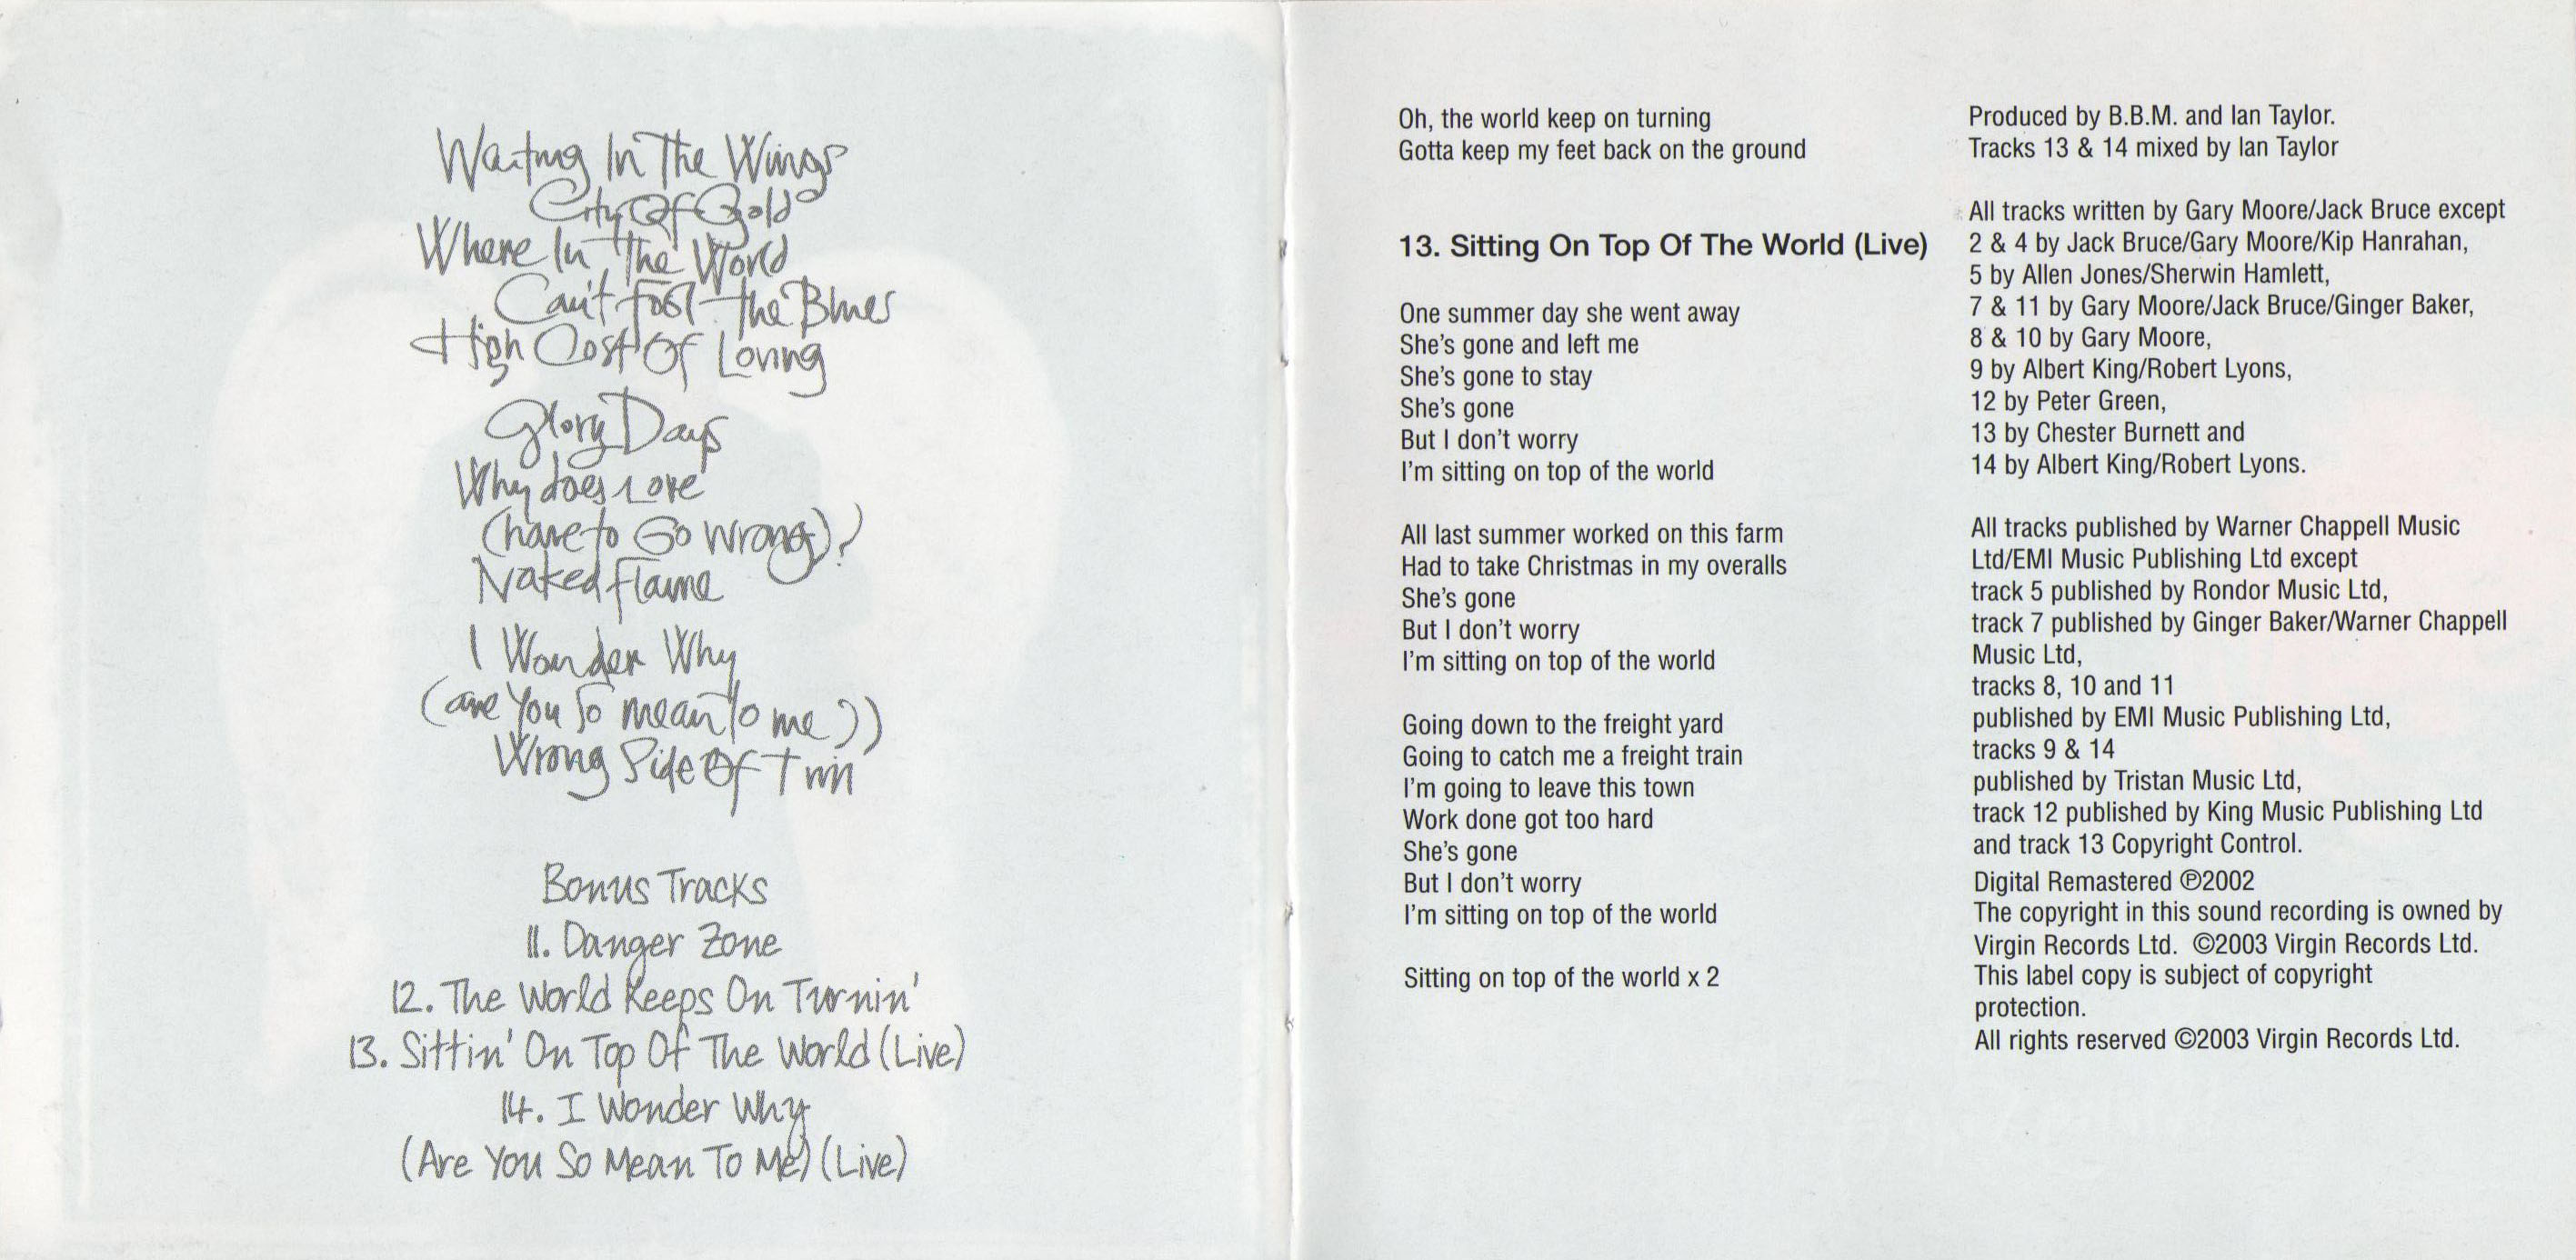 Waiting In The Wings
City Of Gold
Where In The World
Can't fool the Blues
High Cost Of Loving
Glory Days
Why does Love
(have to Go wrong)?
Naked flame
I Wonder Why
(are You So mean To me?)
Wrong Side Of Town
Bonus Tracks
11. Danger Zone
12. The World Keeps On Turnin'
13. Sittin' On Top Of The World (Live)
14. I Wonder Why
(Are You So Mean To Me) (Live)
Oh, the world keep on turning
Gotta keep my feet back on the ground
13. Sitting On Top Of The World (Live)
One summer day she went away
She's gone and left me
She's gone to stay
She's gone
But I don't worry
I'm sitting on top of the world
All last summer worked on this farm
Had to take Christmas in my overalls
She's gone
But I don't worry
I'm sitting on top of the world
Going down to the freight yard
Going to catch me a freight train
I'm going to leave this town
Work done got too hard
She's gone
But I don't worry
I'm sitting on top of the world
Sitting on top of the world x 2
Produced by B.B.M. and Ian Taylor.
Tracks 13 & 14 mixed by Ian Taylor
All tracks written by Gary Moore/Jack Bruce except
2 & 4 by Jack Bruce/Gary Moore/Kip Hanrahan,
5 by Allen Jones/Sherwin Hamlett,
7 & 11 by Gary Moore/Jack Bruce/Ginger Baker,
8 & 10 by Gary Moore,
9 by Albert King/Robert Lyons,
12 by Peter Green,
13 by Chester Burnett and
14 by Albert King/Robert Lyons.
All tracks published by Warner Chappell Music
Ltd/EMI Music Publishing Ltd except
track 5 published by Rondor Music Ltd,
track 7 published by Ginger Baker/Warner Chappell
Music Ltd,
tracks 8, 10 and 11
published by EMI Music Publishing Ltd,
tracks 9 & 14
published by Tristan Music Ltd,
track 12 published by King Music Publishing Ltd
and track 13 Copyright Control.
Digital Remastered ℗2002
The copyright in this sound recording is owned by
Virgin Records Ltd. ©2003 Virgin Records Ltd.
This label copy is subject of copyright
protection.
All rights reserved ©2003 Virgin Records Ltd.